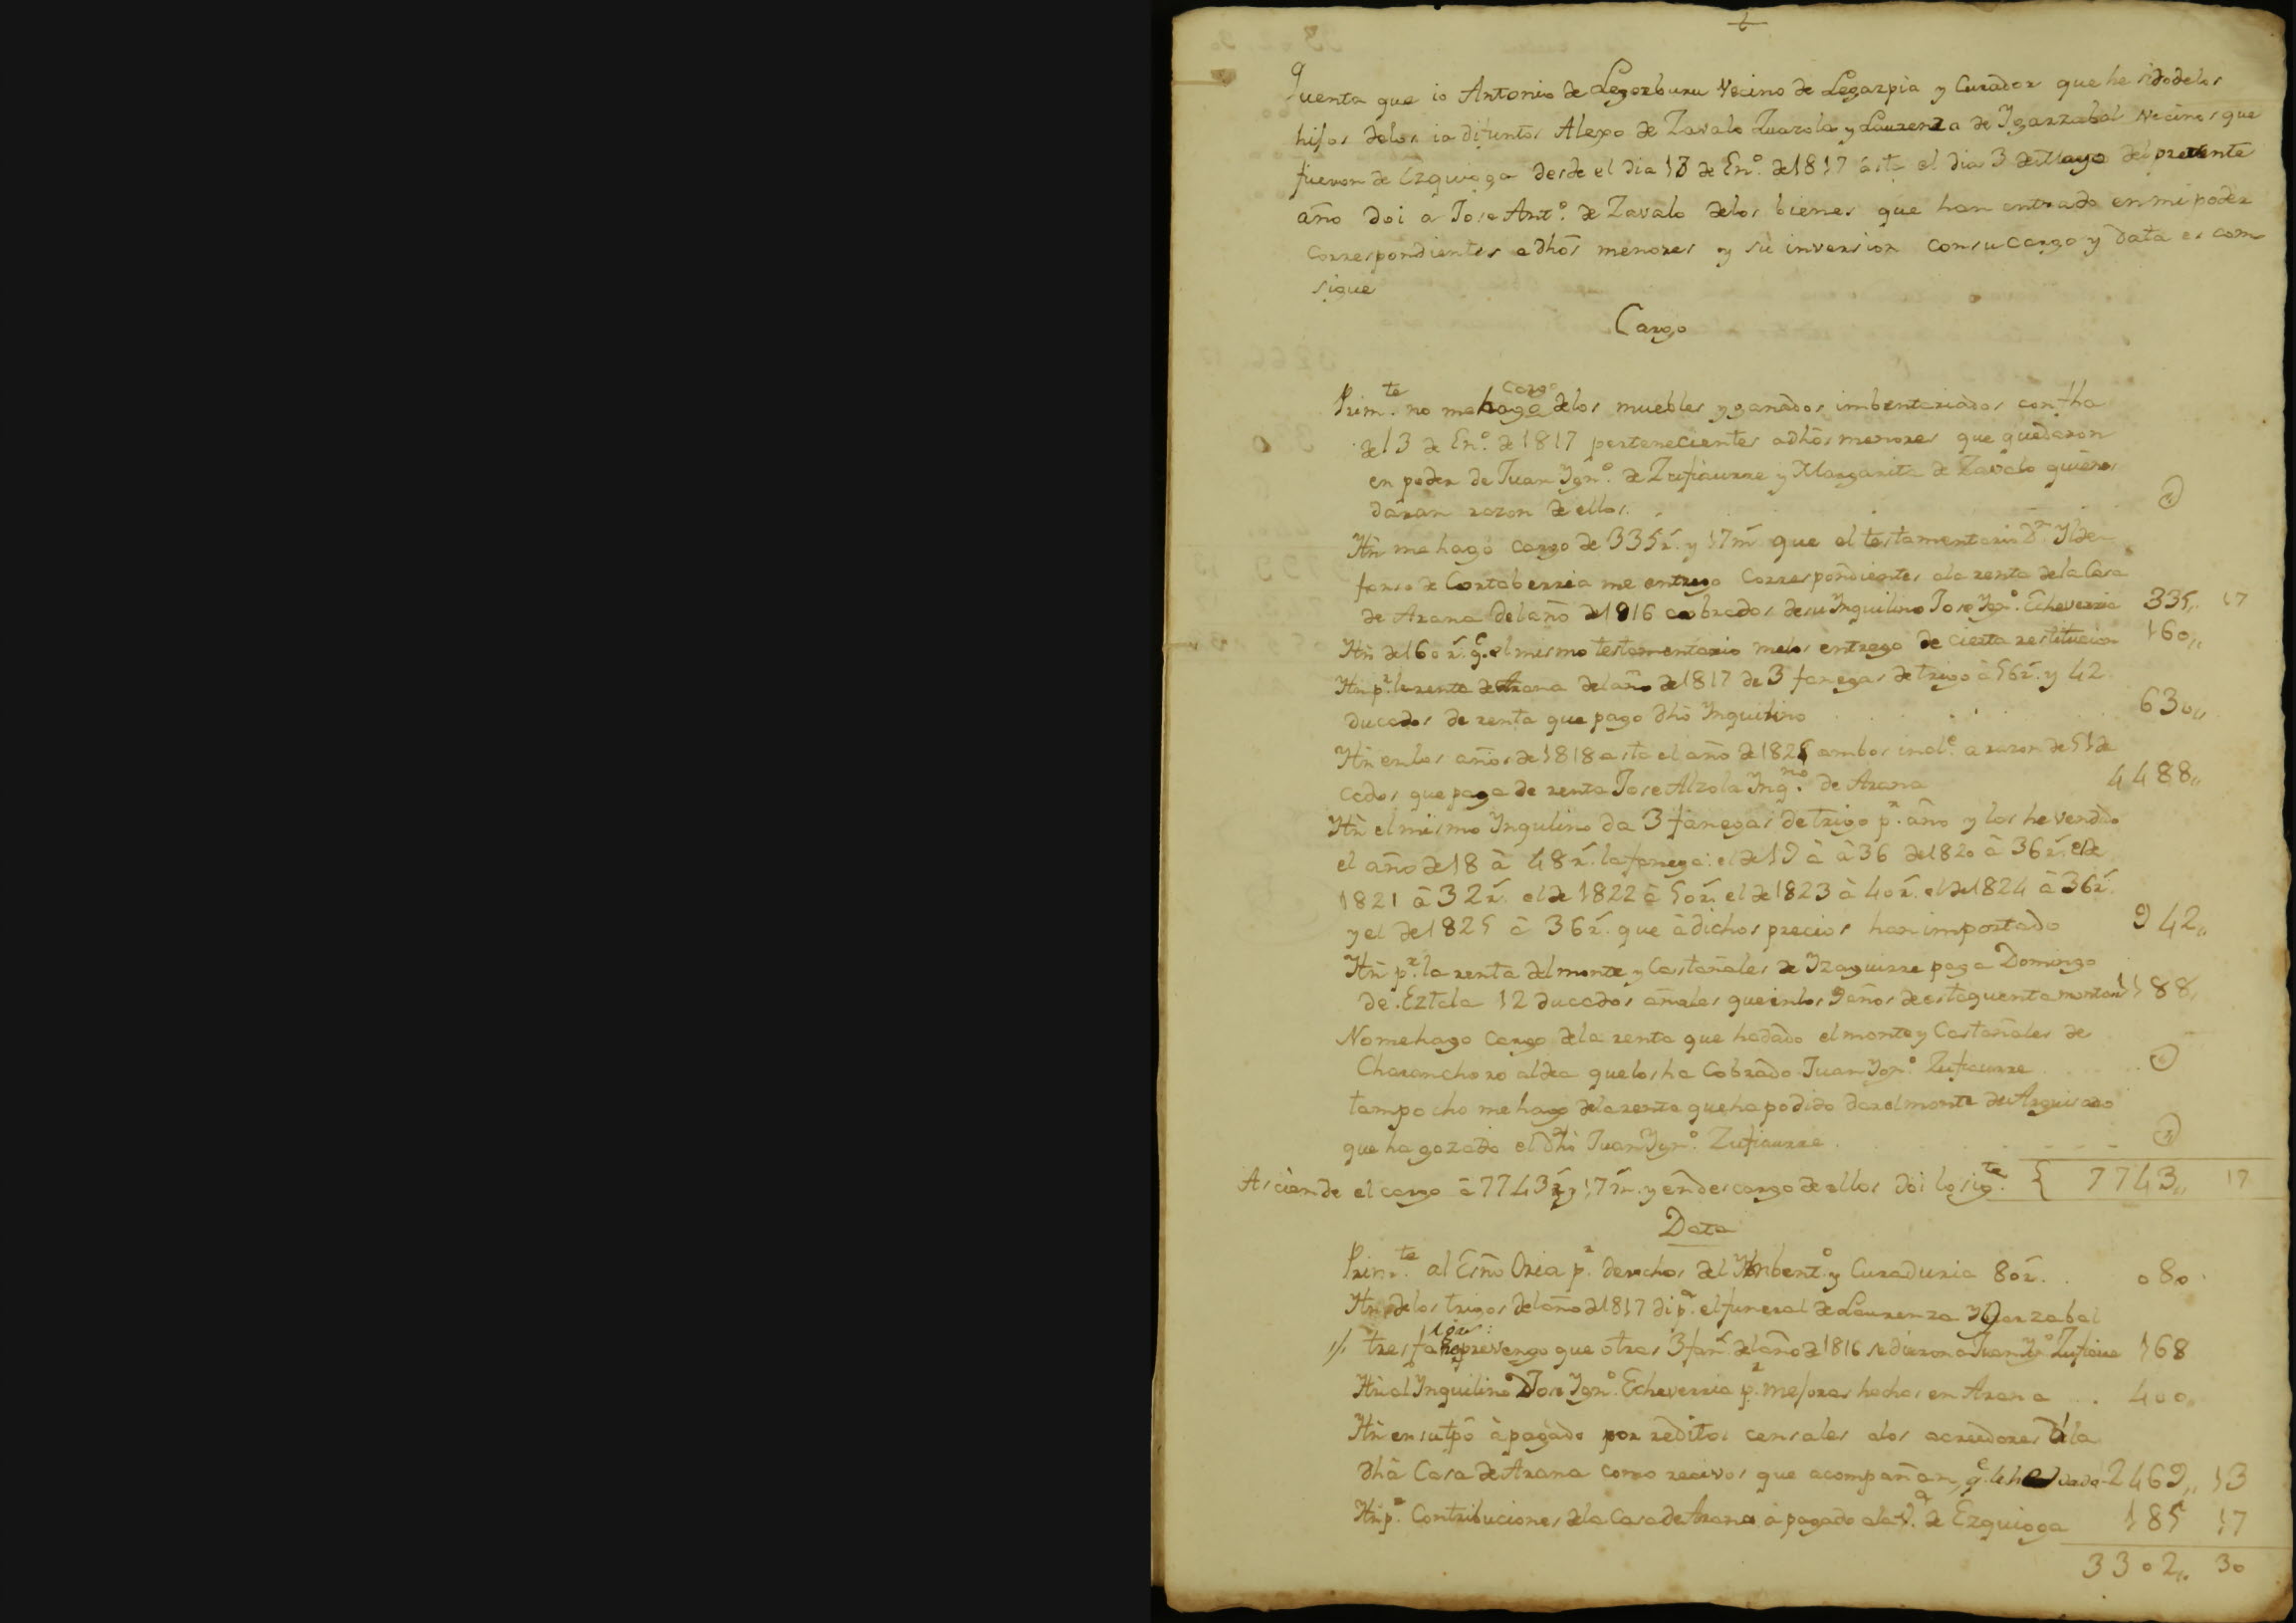 Quenta que io Antonio de Legorburu Vecino de Legazpia y Curador que he sido de los
hijos de los ia difuntos Alexo de Zavalo Zuazola y Laurenza de Ygarzabal Vecinos que
fueron de Ezquioga desde el dia 13 de En.º de 1817 asta el dia 3 de Mayo del presente
año doi a Jose Ant.º de Zavalo de los bienes que han entrado en mi poder
correspondientes a dhos menores y su inversion con su cargo y data es com
sigue
Cargo
Prim.te no me hago cargo de los muebles y ganados imbentariados con fha
de 13 de En.º de 1817 pertenecientes a dhos menores que quedaron
en poder de Juan Ygn.º de Zufiaurre y Margarita de Zavalo quienes
daran razon de ellos.
Ytn me hago cargo de 335 r. y 17 m que el testamentario D.n Ylde
fonso de Cortaberria me entrego correspondientes a la renta de la Casa
de Arana del año de 1816 cobrados de su Ynquilino Jose Ygn.º Echeverria 335,, 17
Ytn de 160 r. q.e el mismo testamentario me los entrego de cierta restitucion 160,,
Ytn p.r la renta de Arana del año de 1817 de 3 fanegas de trigo à 56 r. y 42
ducados de renta que pago dho Ynquilino 630,,
Ytn en los años de 1818 asta el año de 1825 ambos incl.e a razon de 51 du
cados que paga de renta Jose Alzola Ynq.no de Arana 4488,,
Ytn el mismo Ynqulino da 3 fanegas de trigo p.r año y los he vendido
el año de 18 à 48 r. la fanega: el de 19 à à 36 del 820 à 36 r. el de
1821 à 32 r. el de 1822 à 50 r. el de 1823 à 40 r. el del 824 à 36 r.
y el del 825 à 36 r. que à dichos precios han importado 942,,
Ytn p.r la renta del monte y Castañales de Yzaguirre paga Domingo
de Eztala 12 ducados añales que en los 9 años de esta quenta montan 1188,,
No me hago cargo de la renta que ha dado el monte y Castañales de
Charanchoro aldea que los ha Cobrado Juan Ygn.º Zufiaurre
tampocho me hago de la renta que ha podido dar el monte de
que ha gozado el dho Juan Ygn.º Zufiaurre
Asciende el cargo à 7743 r. y 17 m. y en descargo de ellos doi lo sig.te { 7743,, 17
Data
Prim.te al Esño Oria p.r derechos del Ynbent.º y Curaduria 80 r. 080
Ytn de los trigos del año de 1817 di p.a el funeral de Laurenza Ygarzabal
tres prevengo que otras 3 fan.s del año de 1816 se dieron a Juan Yg.º Zufiaure 168
Ytn al Ynquilino Jose Ygn.º Echeverria p.r mejoras hechas en Arana 400,,
Ytn en su tpô à pagado por reditos censales a los acreedores de la
dhâ Casa de Arana como recivos que acompañan, q.e le he dado 2469,, 13
Ytn p.r Contribuciones de la Casa de Arana à pagado a la V.a de Ezquioga 185 17
3302,, 30